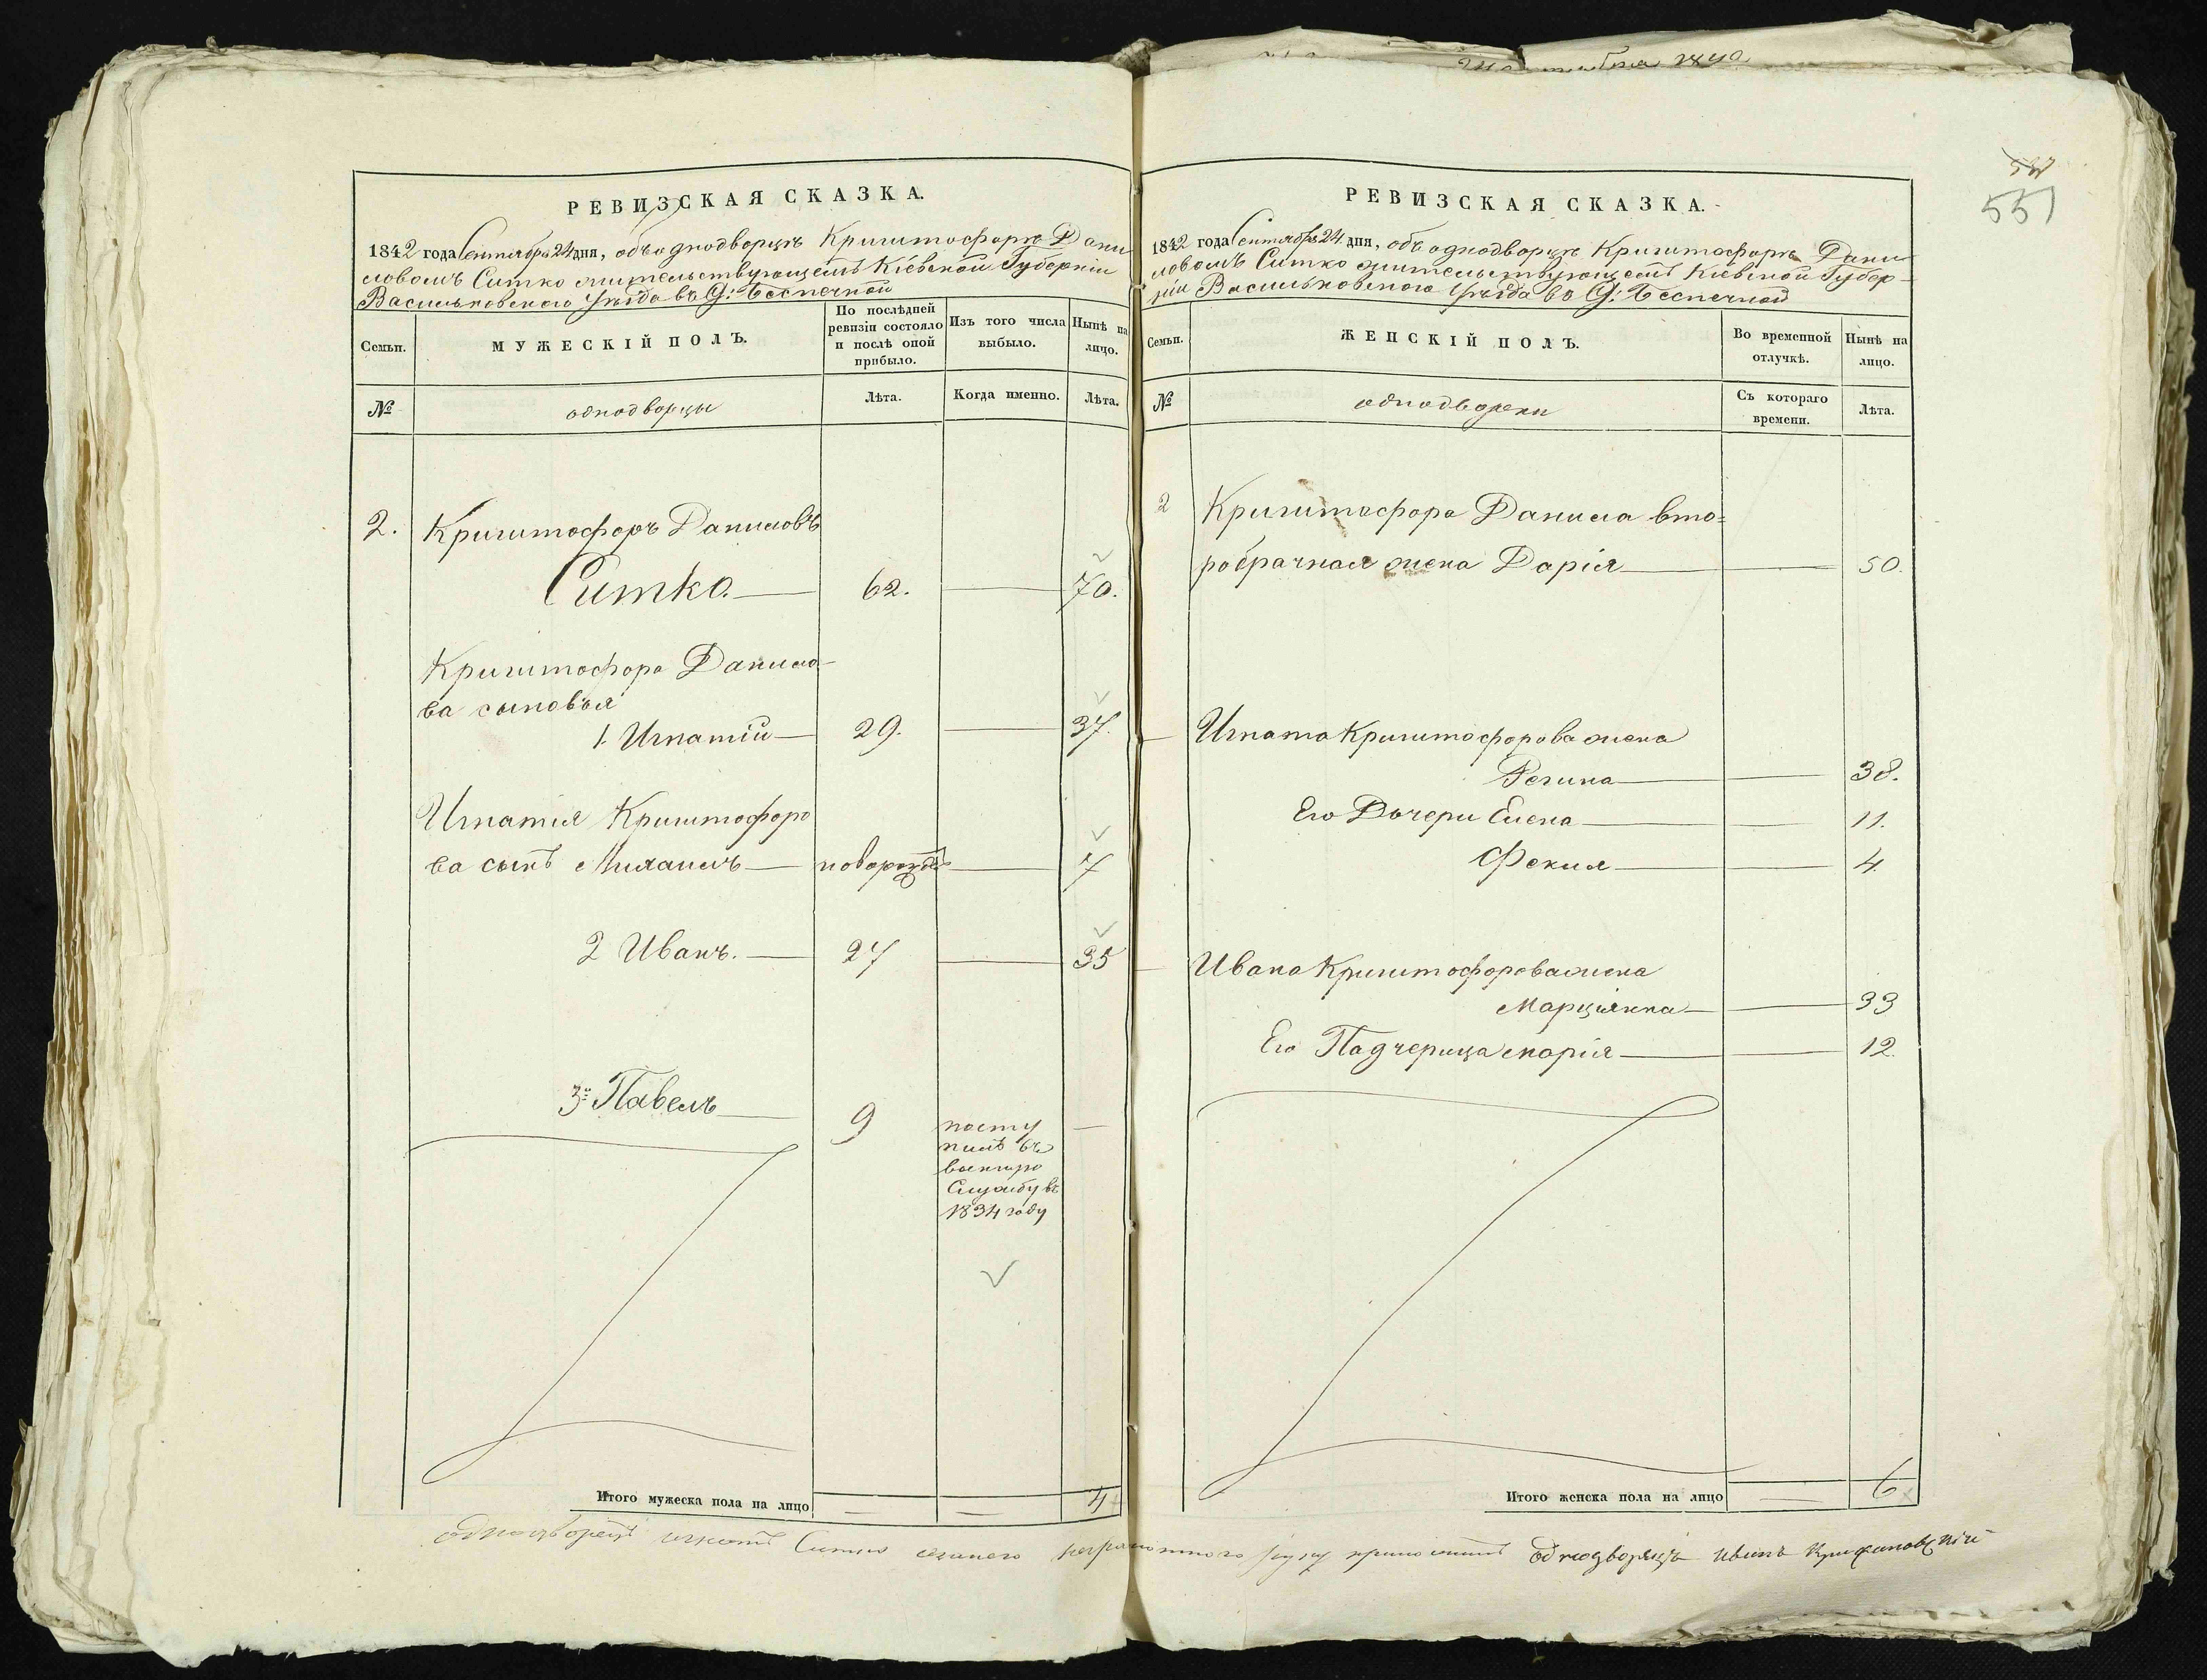 РЕВИЗСКАЯ СКАЗКА.
1842 года Сентября 24 дня, объ однодворцѣ Криштофорѣ Дани
ловомъ Ситко жительствующемъ Кіевской Губерніи
Васильковскаго Уѣзда въ С: Безпечной
Семьи.
МУЖЕСКІЙ ПОЛЪ.
По послѣдней
ревизіи состояло
и послѣ оной
прибыло.
Изъ того числа
выбыло.
Нынѣ на
лицо.
№
однодворцы
Лѣта.
Когда именно.
Лѣта.
2. Криштофоръ Даниловъ
Ситко. 62. 70.
Криштофора Данило-
ва сыновья
1. Игнатій 29. 37.
Игнатія Криштофоро
ва сынъ Михаилъ новорожд 7
2 Иванъ. 27 35
3й Павелъ 9 посту
пилъ въ
военную
Службу въ
1834 году
Итого мужеска пола на лицо 4
РЕВИЗСКАЯ СКАЗКА.
551
1842 года Сентября 24 дня, объ однодворцѣ Криштофорѣ Дани
ловомъ Ситко жительствующемъ Кіевской Губер-
ніи Васильковскаго Уѣзда въ С: Безпечной
Семьи.
ЖЕНСКІЙ ПОЛЪ.
Во временной
отлучкѣ.
Нынѣ на
лицо.
№
однодворки
Съ котораго
времени.
Лѣта.
2 Криштофора Данила вто=
робрачная жена Дарія 50.
Игната Криштофорова жена
Регина 38.
Его Дочери Елена 11.
Фекля 4.
Ивана Криштофорова жена
Марціянна 33
Его Падчерица Марія 12.
Итого женска пола на лицо 6
однодворецъ Игнатъ Ситко а вместо неграмотного руку приложилъ однодворецъ Иванъ